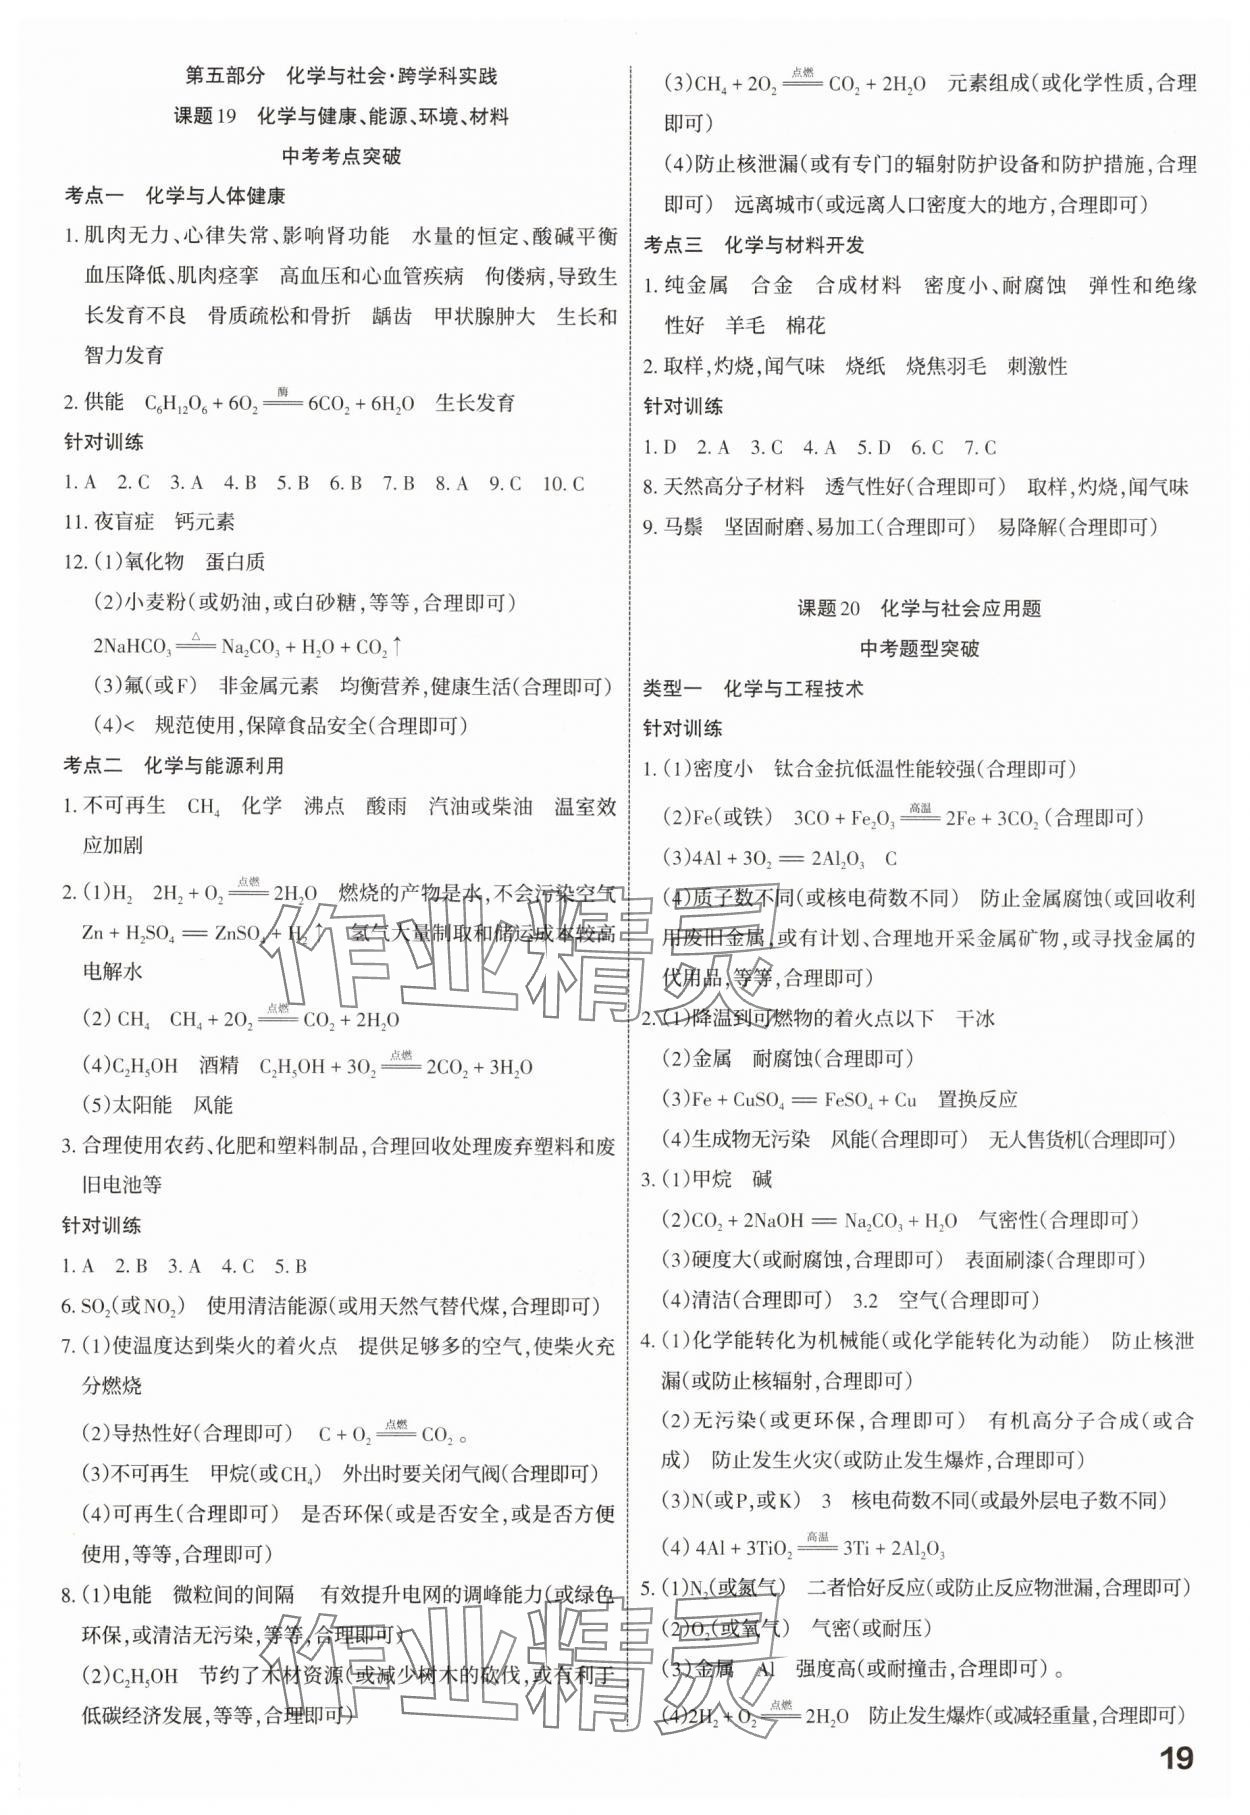 第五部分　化学与社会·跨学科实践
课题19　化学与健康、能源、环境、材料
中考考点突破
考点一　化学与人体健康
1. 肌肉无力、心律失常、影响肾功能　水量的恒定、酸碱平衡
血压降低、肌肉痉挛　高血压和心血管疾病　佝偻病,导致生
长发育不良　骨质疏松和骨折　龋齿　甲状腺肿大　生长和
智力发育
2. 供能　C₆H₁₂O₆ + 6O₂ ══酶══ 6CO₂ + 6H₂O　生长发育
针对训练
1. A　2. C　3. A　4. B　5. B　6. B　7. B　8. A　9. C　10. C
11. 夜盲症　钙元素
12. (1)氧化物　蛋白质
(2)小麦粉(或奶油,或白砂糖,等等,合理即可)
2NaHCO₃ ══△══ Na₂CO₃ + H₂O + CO₂↑
(3)氟(或F)　非金属元素　均衡营养,健康生活(合理即可)
(4)<　规范使用,保障食品安全(合理即可)
考点二　化学与能源利用
1. 不可再生　CH₄　化学　沸点　酸雨　汽油或柴油　温室效
应加剧
2. (1)H₂　2H₂ + O₂ ══点燃══ 2H₂O　燃烧的产物是水,不会污染空气
Zn + H₂SO₄ ══ ZnSO₄ + H₂↑　氢气大量制取和储运成本较高
电解水
(2) CH₄　CH₄ + 2O₂ ══点燃══ CO₂ + 2H₂O
(4)C₂H₅OH　酒精　C₂H₅OH + 3O₂ ══点燃══ 2CO₂ + 3H₂O
(5)太阳能　风能
3. 合理使用农药、化肥和塑料制品,合理回收处理废弃塑料和废
旧电池等
针对训练
1. A　2. B　3. A　4. C　5. B
6. SO₂(或NO₂)　使用清洁能源(或用天然气替代煤,合理即可)
7. (1)使温度达到柴火的着火点　提供足够多的空气,使柴火充
分燃烧
(2)导热性好(合理即可)　C + O₂ ══点燃══ CO₂ 。
(3)不可再生　甲烷(或CH₄)　外出时要关闭气阀(合理即可)
(4)可再生(合理即可)　是否环保(或是否安全,或是否方便
使用,等等,合理即可)
8. (1)电能　微粒间的间隔　有效提升电网的调峰能力(或绿色
环保,或清洁无污染,等等,合理即可)
(2)C₂H₅OH　节约了木材资源(或减少树木的砍伐,或有利于
低碳经济发展,等等,合理即可)
(3)CH₄ + 2O₂ ══点燃══ CO₂ + 2H₂O　元素组成(或化学性质,合理
即可)
(4)防止核泄漏(或有专门的辐射防护设备和防护措施,合理
即可)　远离城市(或远离人口密度大的地方,合理即可)
考点三　化学与材料开发
1. 纯金属　合金　合成材料　密度小、耐腐蚀　弹性和绝缘
性好　羊毛　棉花
2. 取样,灼烧,闻气味　烧纸　烧焦羽毛　刺激性
针对训练
1. D　2. A　3. C　4. A　5. D　6. C　7. C
8. 天然高分子材料　透气性好(合理即可)　取样,灼烧,闻气味
9. 马鬃　坚固耐磨、易加工(合理即可)　易降解(合理即可)
课题20　化学与社会应用题
中考题型突破
类型一　化学与工程技术
针对训练
1. (1)密度小　钛合金抗低温性能较强(合理即可)
(2)Fe(或铁)　3CO + Fe₂O₃ ══高温══ 2Fe + 3CO₂ (合理即可)
(3)4Al + 3O₂ ══ 2Al₂O₃　C
(4)质子数不同(或核电荷数不同)　防止金属腐蚀(或回收利
用废旧金属,或有计划、合理地开采金属矿物,或寻找金属的
代用品,等等,合理即可)
2. (1)降温到可燃物的着火点以下　干冰
(2)金属　耐腐蚀(合理即可)
(3)Fe + CuSO₄ ══ FeSO₄ + Cu　置换反应
(4)生成物无污染　风能(合理即可)　无人售货机(合理即可)
3. (1)甲烷　碱
(2)CO₂ + 2NaOH ══ Na₂CO₃ + H₂O　气密性(合理即可)
(3)硬度大(或耐腐蚀,合理即可)　表面刷漆(合理即可)
(4)清洁(合理即可)　3.2　空气(合理即可)
4. (1)化学能转化为机械能(或化学能转化为动能)　防止核泄
漏(或防止核辐射,合理即可)
(2)无污染(或更环保,合理即可)　有机高分子合成(或合
成)　防止发生火灾(或防止发生爆炸,合理即可)
(3)N(或P,或K)　3　核电荷数不同(或最外层电子数不同)
(4) 4Al + 3TiO₂ ══高温══ 3Ti + 2Al₂O₃
5. (1)N₂(或氮气)　二者恰好反应(或防止反应物泄漏,合理即可)
(2)O₂(或氧气)　气密(或耐压)
(3)金属　Al　强度高(或耐撞击,合理即可)。
(4)2H₂ + O₂ ══点燃══ 2H₂O　防止发生爆炸(或减轻重量,合理即可)
19
作业精灵
作业精灵